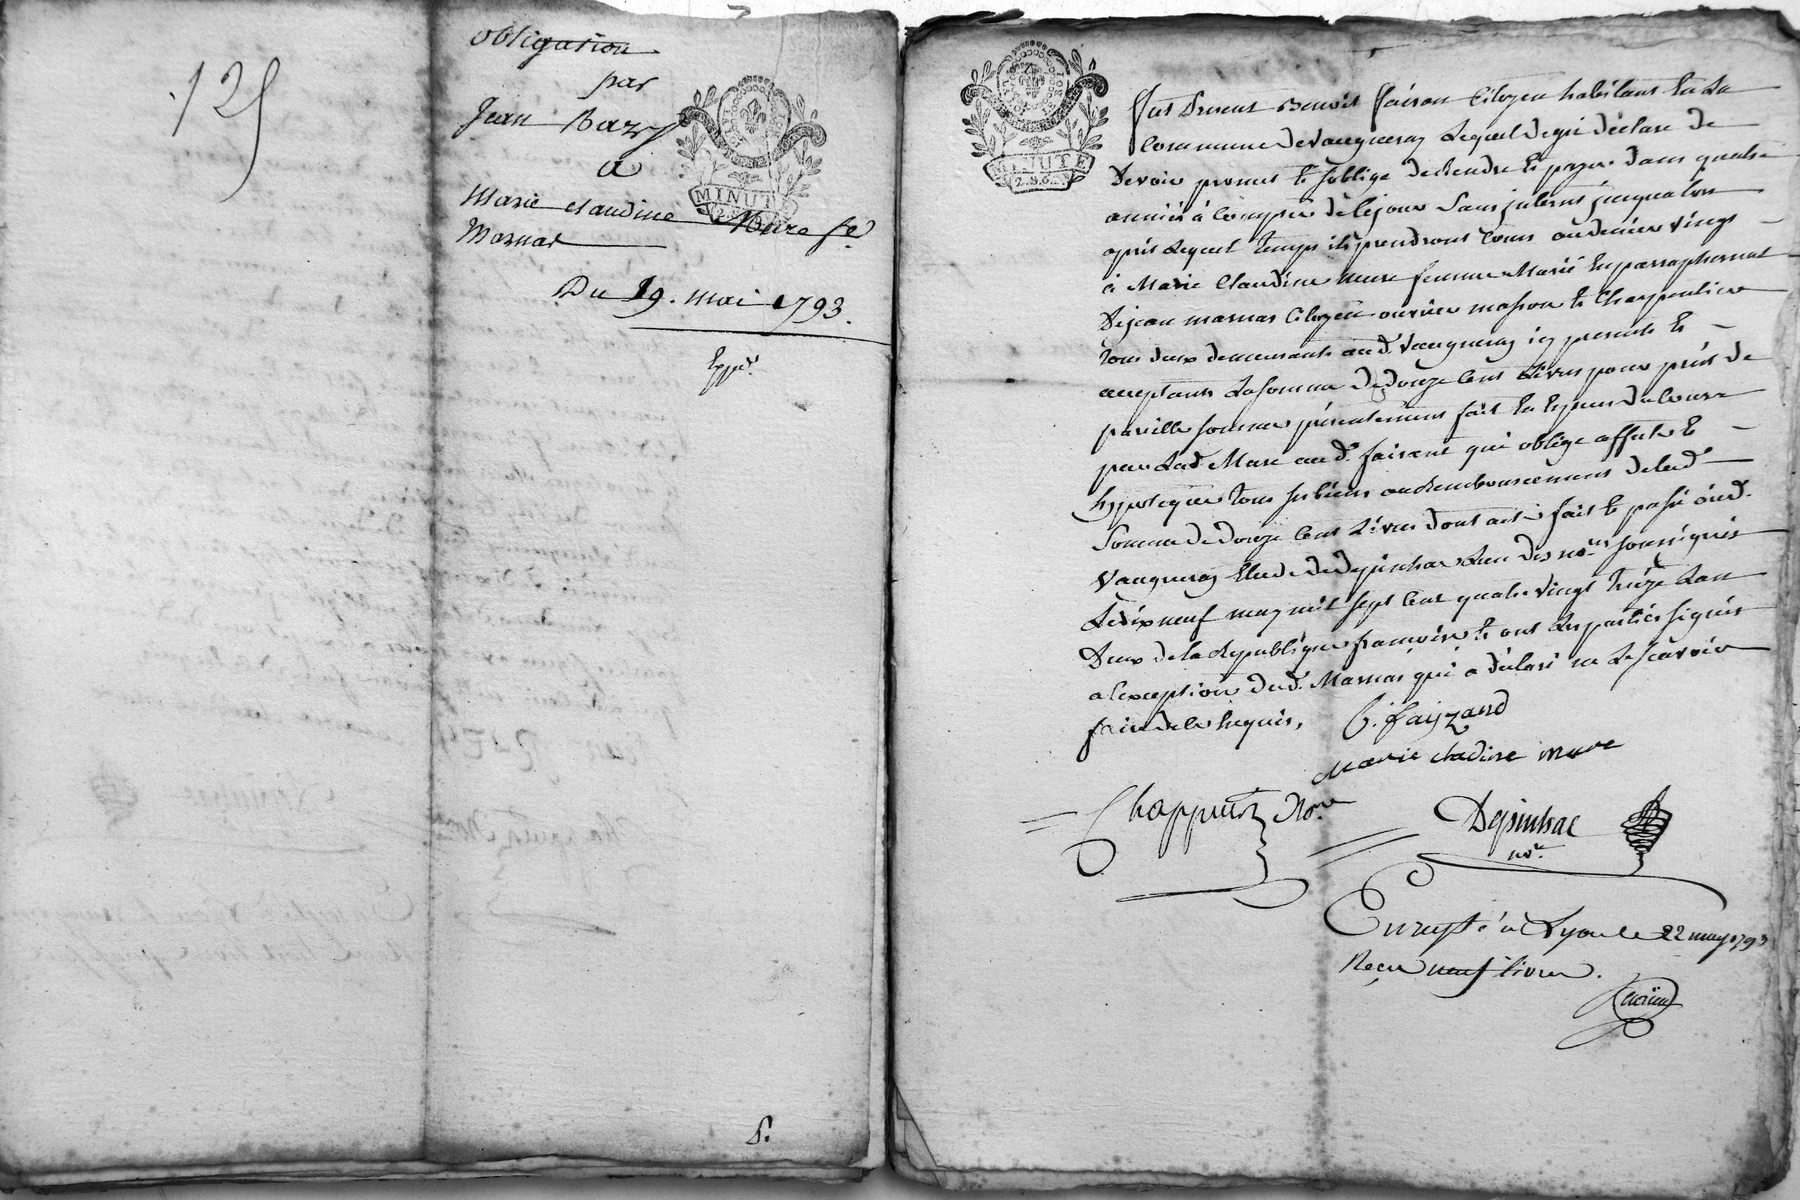 125
obligation
par
Jean Bazy
a
Marie claudine Mure fe
Marnas
Du 19. mai 1793.
Exped.
MINUTE
MINUTE
2.S.6.
fut Present Benoit faisan Citoyen habitant En La
Commune de vaugneray Lequel degré déclare de
devoir promet et soblige de Rendre et payer dans quatre
années à Compter de Cejour Sans interêt jusqualors
après Lequel temps ils prendront Cours audenier vingt
à Marie Claudine mure femme Marié En parraphernat
De jean marnas Citoyen ouvrier masson et Charpentier
tous deux demeurants aud. Vaugneray icy presents et
acceptants La somme De douze Cent Livres pour prêt de
pareille somme présentement fait En Especes de Cours
par Lad. Mure aud. faisant qui oblige affecte et
hypoteque tous ses biens au Remboursement delad.
Somme De douze Cent Livres dont acte fait et passé aud.
Vaugneray Etude de Depinhac Lun des nores soussignés
Le dix neuf may mil sept Cent quatre vingt treize Lan
Deux de la Republique francoise et ont Les parties signés
a Lexception dud. Marnas qui a déclaré ne Le scavoir
faire de ce Requis,
B. faizand
Marie cladine mure
Chappuis Nore
Depinhac
nore
Enregté à Lyon le 22 may 1793
Reçu neuf livres.
S.